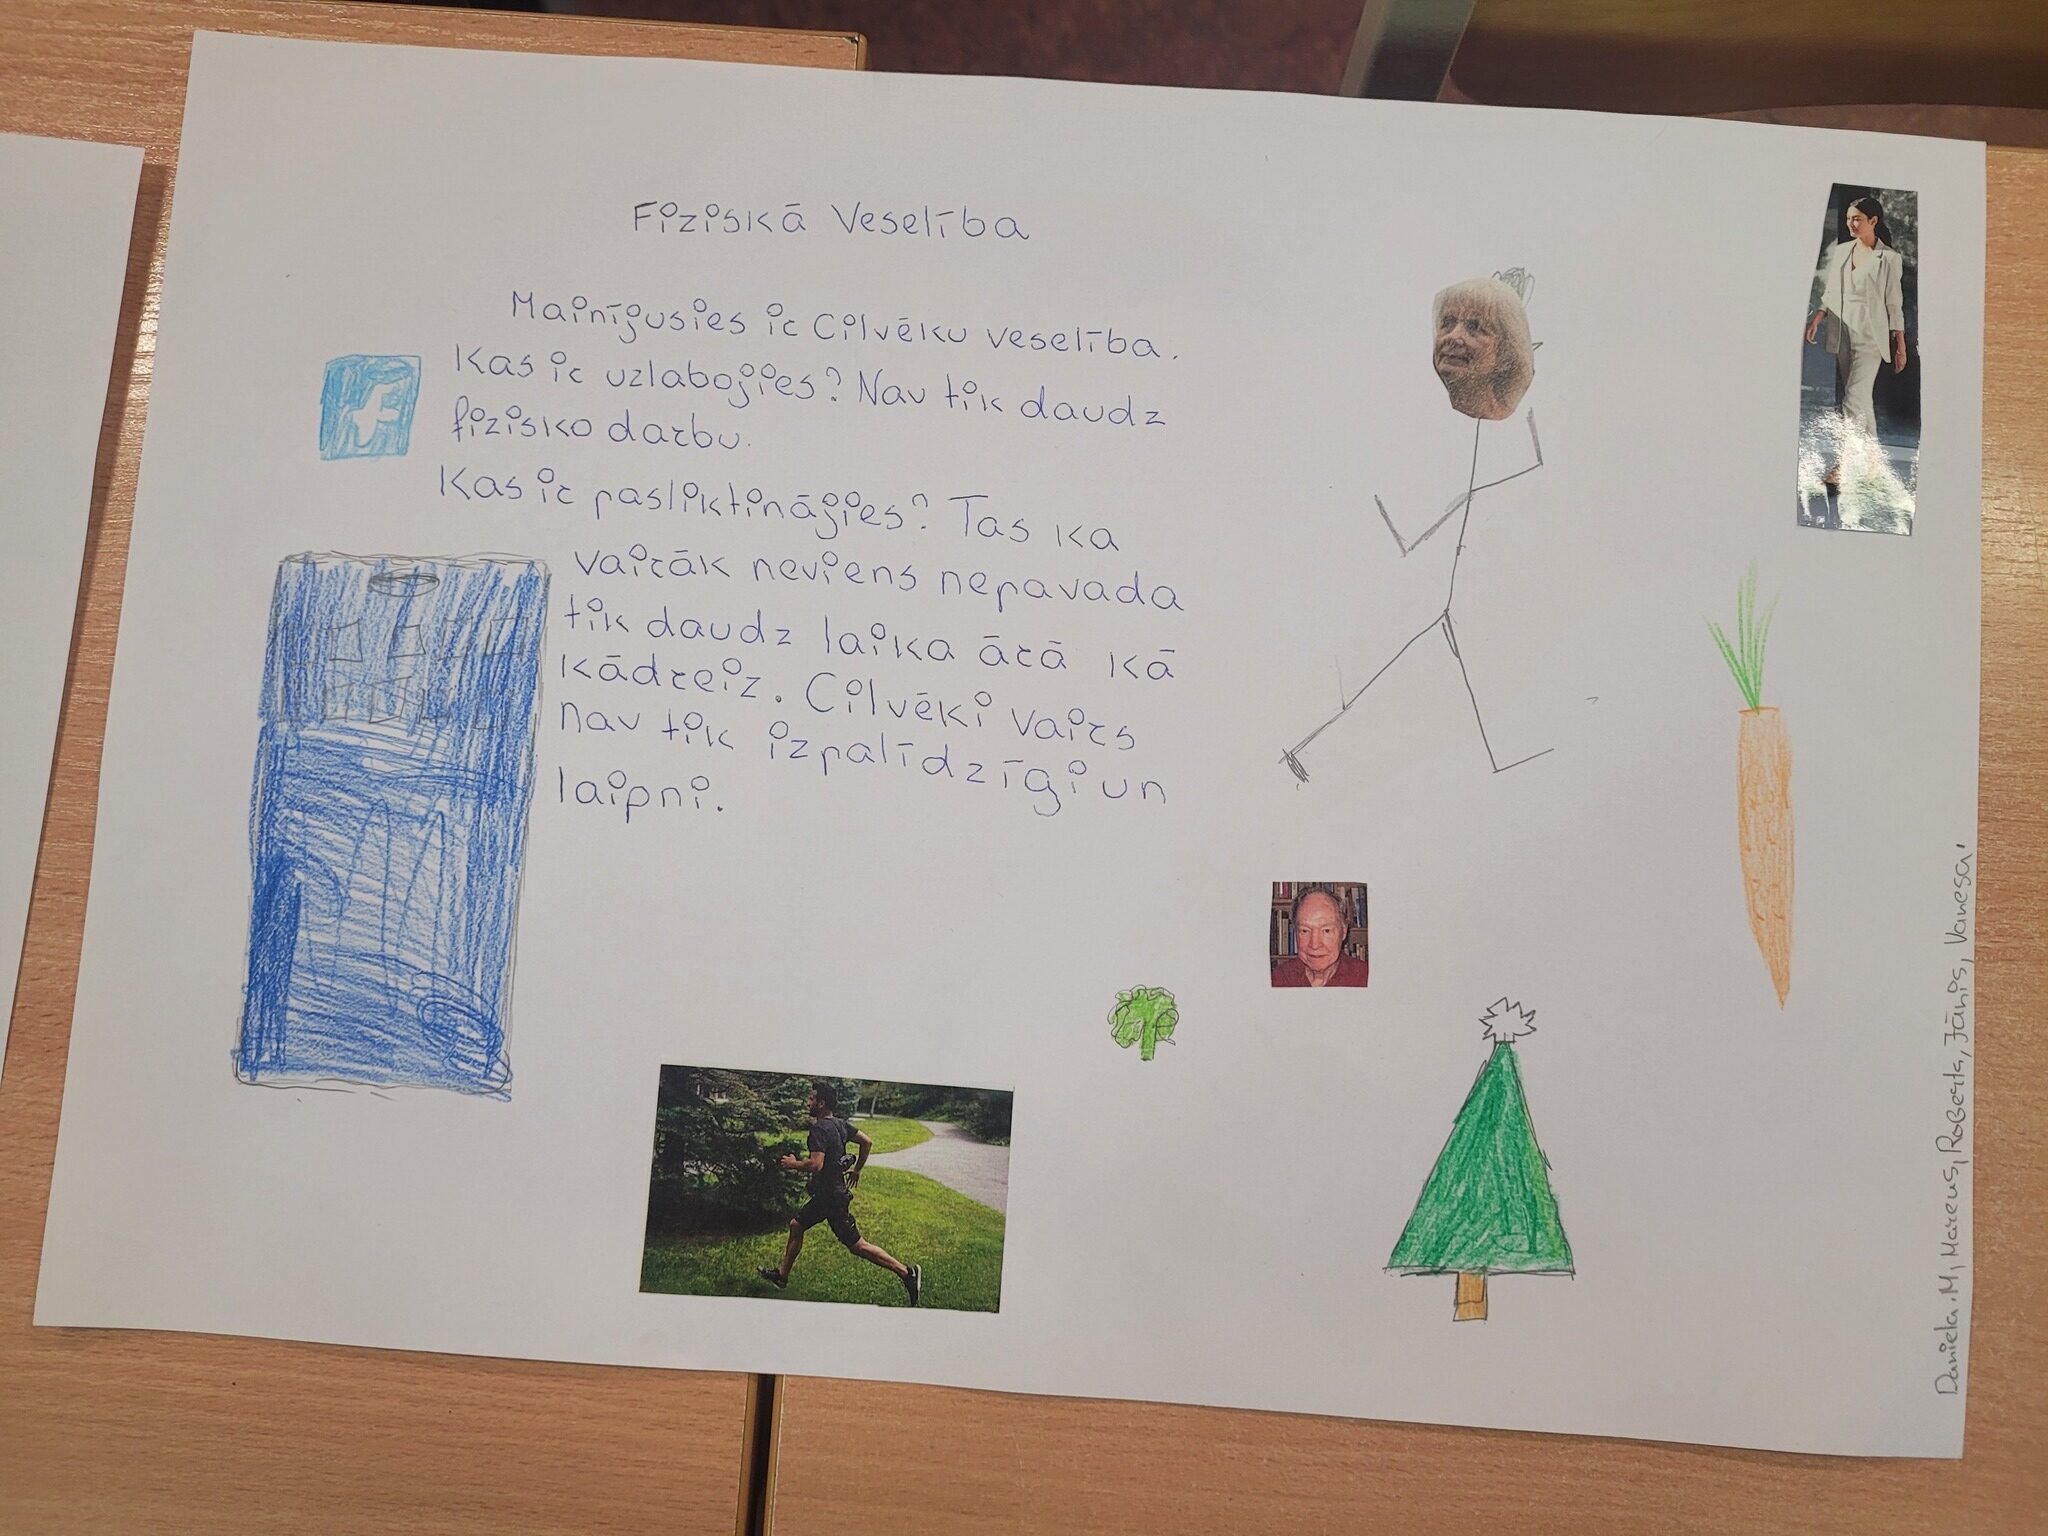 Fiziskā Veselība
Mainīgusies ir Cilvēku veselība.
Kas ir uzlabojies? Nav tik daudz
fizisko darbu.
Kas ir pasliktinājies? Tas ka
vairāk neviens nepavada
tik daudz laika ārā kā
kādreiz. Cilvēki vairs
nav tik izpalīdzīgi un
laipni.
Daniela.M, Marcus, Roberts, Jānis, Vanesa.